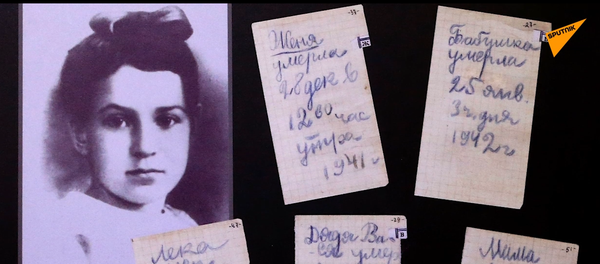 -37-
Женя
умерла
28 дек в
12 00 час
утра
1941 г
Ж
-27-
Бабушка
умерла
25 янв.
3 ч. дня
1942 г
SPUTNIK
Лека
Дядя Ва-
ся умер
В
Мама